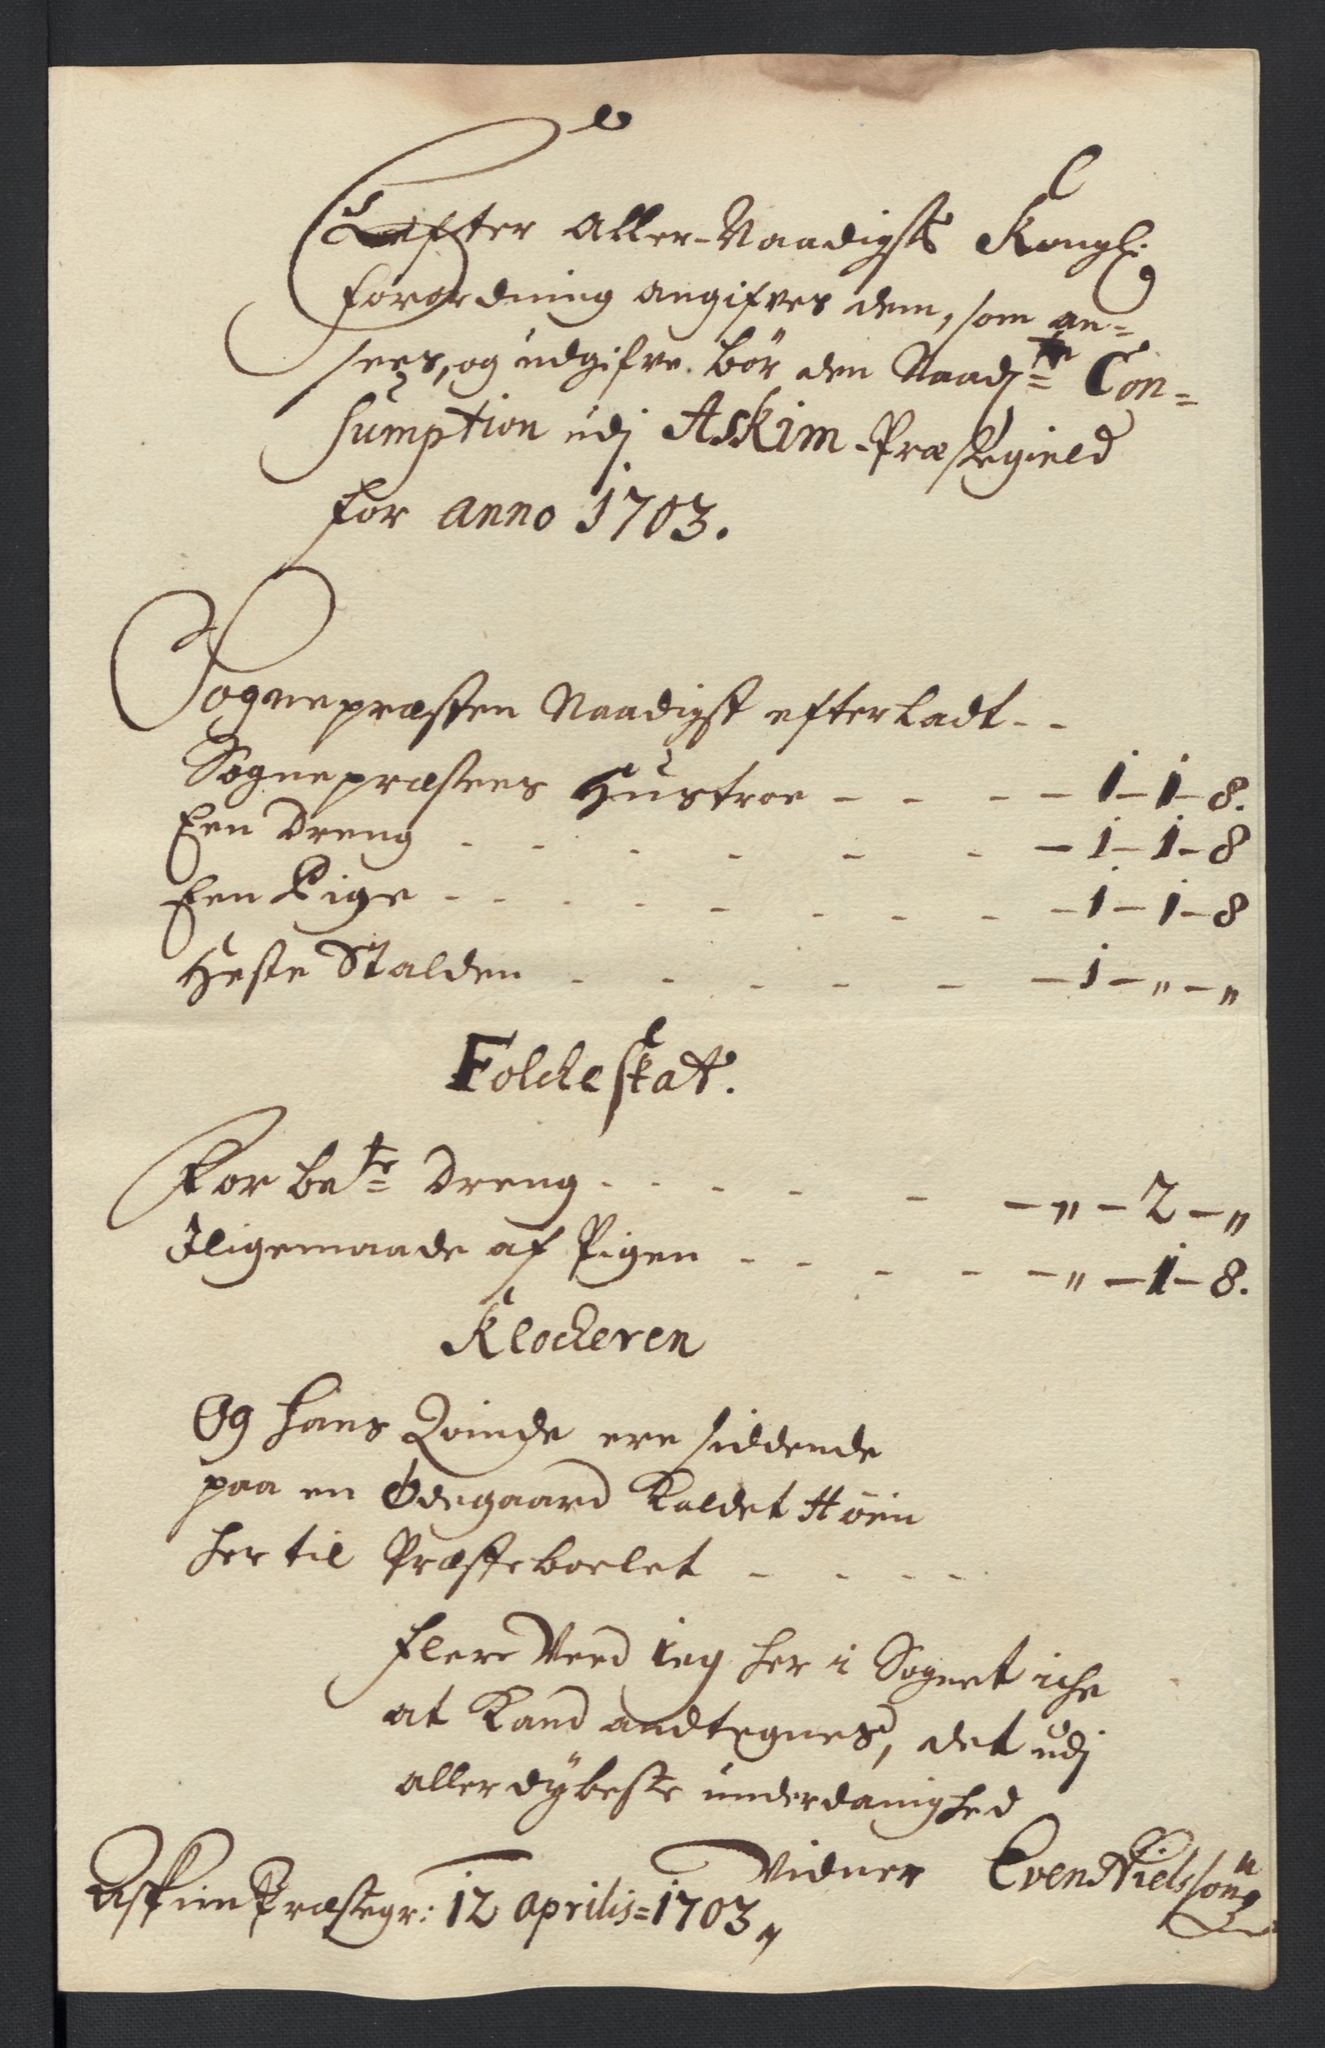 Effter Aller-Naadigste Kongl:
forordning angifves dem, som an=
sees, og udgifve bør den Naad:te Con=
sumption udj Askim-Præstegield
for anno 1703.
Sognepræsten Naadigst efterladt - -
Sognepræstens Hustroe - - - - 1 - 1 - 8.
Een Dreng - - - - - - - 1 - 1 - 8
Een Pige - - - - - - - - - 1 - 1 - 8
Heste Stalden - - - - - - 1 - " - "
Folckeskat.
For be:te Dreng - - - - - - " - 2 - "
Iligemaade af Pigen - - - - - " - 1 - 8.
Klockeren
Og hans Qvinde ere siddende
paa en Ødegaard Kaldet Høen
her til Præsteboelet - - - -
flere Veed ieg her i Sognet iche
at Kand andtegnes, det udj
allerdÿbeste underdanighed
Vidner Even Nielssøn
Askim Præstegr: 12 Aprilis = 1703